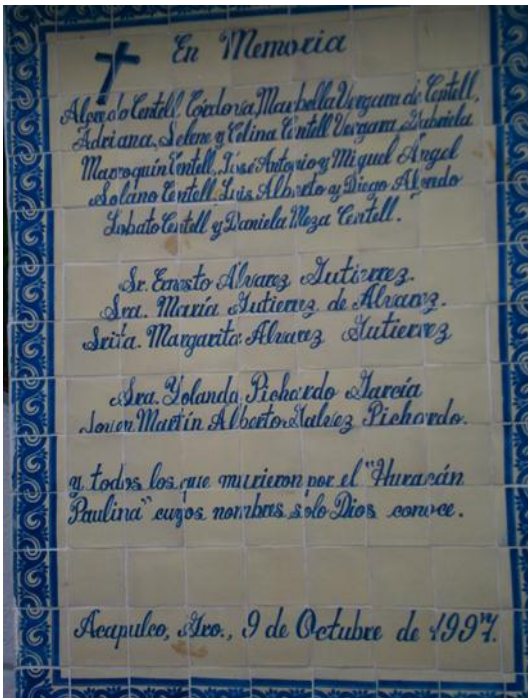 En Memoria
Alfredo Centell Córdova, Marbella Vergara de Centell,
Adriana, Selene y Celina Centell Vergara, Gabriela
Marroquín Centell, José Antonio y Miguel Ángel
Solano Centell, Luis Alberto y Diego Alfredo
Lobato Centell y Daniela Meza Centell.
Sr. Ernesto Álvarez Gutiérrez.
Sra. María Gutierrez de Alvarez.
Srita. Margarita Alvarez Gutierrez
Sra. Yolanda Pichardo García
Joven Martín Alberto Galvez Pichardo.
y todos los que murieron por el "Huracán
Paulina" cuyos nombres sólo Dios conoce.
Acapulco, Gro., 9 de Octubre de 1997.